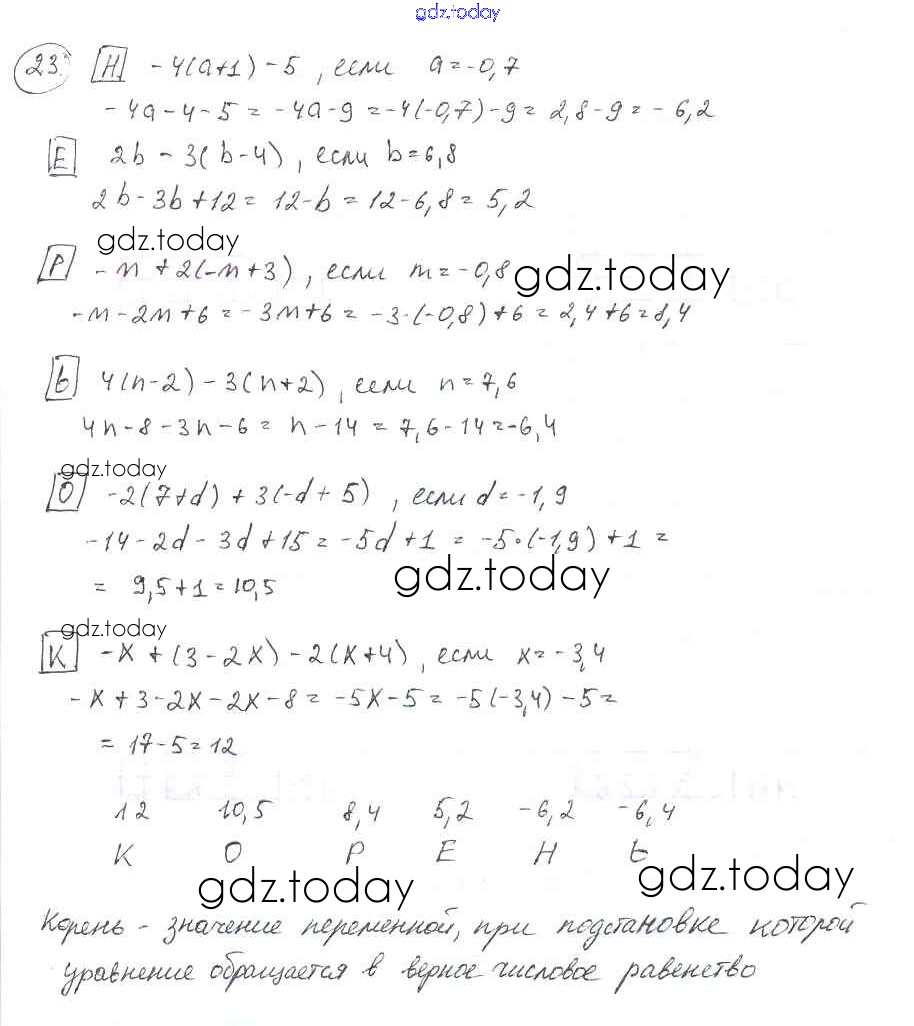 gdz.today
23. Н -4(a+1)-5, если a=-0,7
-4a-4-5=-4a-9=-4(-0,7)-9=2,8-9=-6,2
Е 2b-3(b-4), если b=6,8
2b-3b+12=12-b=12-6,8=5,2
gdz.today
Р -m+2(-m+3), если m=-0,8 gdz.today
-m-2m+6=-3m+6=-3·(-0,8)+6=2,4+6=8,4
Ь 4(n-2)-3(n+2), если n=7,6
4n-8-3n-6=n-14=7,6-14=-6,4
gdz.today
О -2(7+d)+3(-d+5), если d=-1,9
-14-2d-3d+15=-5d+1=-5·(-1,9)+1=
= 9,5+1=10,5 gdz.today
gdz.today
К -x+(3-2x)-2(x+4), если x=-3,4
-x+3-2x-2x-8=-5x-5=-5(-3,4)-5=
= 17-5=12
12 10,5 8,4 5,2 -6,2 -6,4
К О Р Е Н Ь
gdz.today gdz.today
Корень - значение переменной, при подстановке которой
уравнение обращается в верное числовое равенство